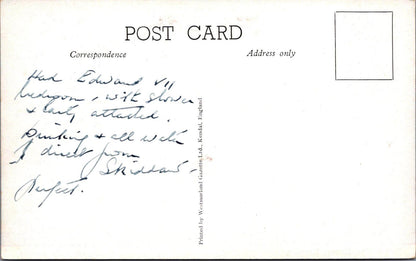 POST CARD
Correspondence
Address only
Had Edward VII
bedroom, with shower
& lav, attached.
Drinking & all water
direct from
Skiddaw -
Perfect.
Printed by Westmorland Gazette, Ltd., Kendal, England